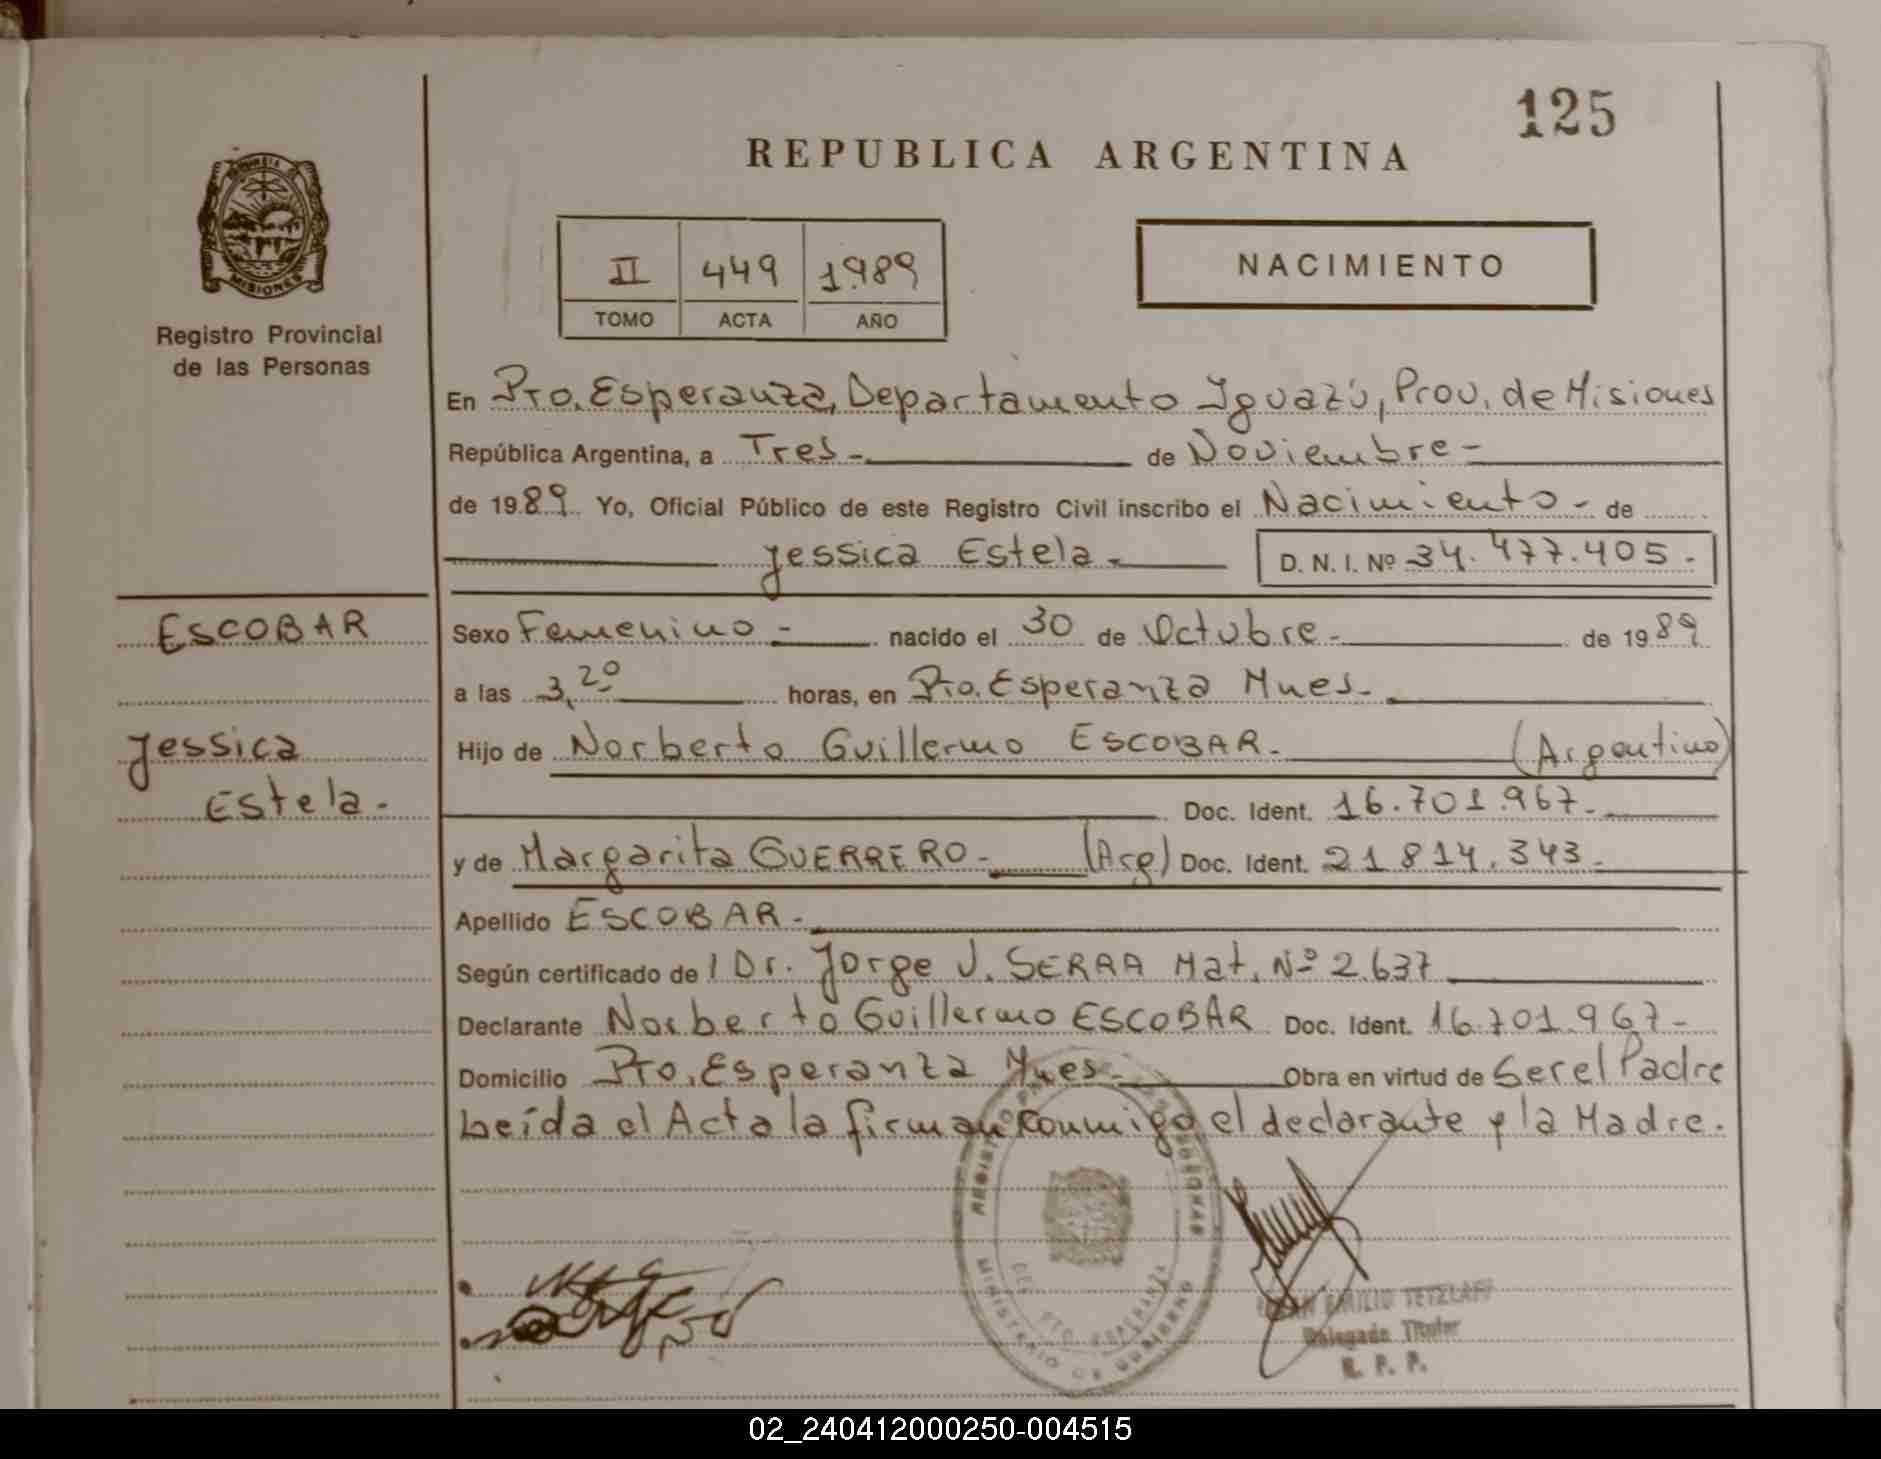 125
REPUBLICA ARGENTINA
MISIONES
Registro Provincial
de las Personas
II 449 1989
TOMO ACTA AÑO
NACIMIENTO
En Pto. Esperanza, Departamento Iguazú, Prov. de Misiones
República Argentina, a Tres - de Noviembre -
de 1989 Yo, Oficial Público de este Registro Civil inscribo el Nacimiento - de
Jessica Estela. D. N. I. Nº 34.477.405.
ESCOBAR
Jessica
Estela.
Sexo Femenino - nacido el 30 de Octubre - de 1989
a las 3,20 horas, en Pto. Esperanza Mnes.
Hijo de Norberto Guillermo ESCOBAR. (Argentino)
Doc. Ident. 16.701.967.
y de Margarita GUERRERO - (Arg) Doc. Ident. 21 814.343.
Apellido ESCOBAR.
Según certificado de l Dr. Jorge J. SERRA Mat. Nº 2.637
Declarante Norberto Guillermo ESCOBAR Doc. Ident. 16.701.967-
Domicilio Pto. Esperanza Mnes. Obra en virtud de Ser el Padre
Leída el Acta la firman conmigo el declarante y la Madre.
MINISTERIO DE GOBIERNO
DEL. PTO. ESPERANZA
EMILIO TETZLAFF
Delegado Titular
R. P. P.
02_240412000250-004515